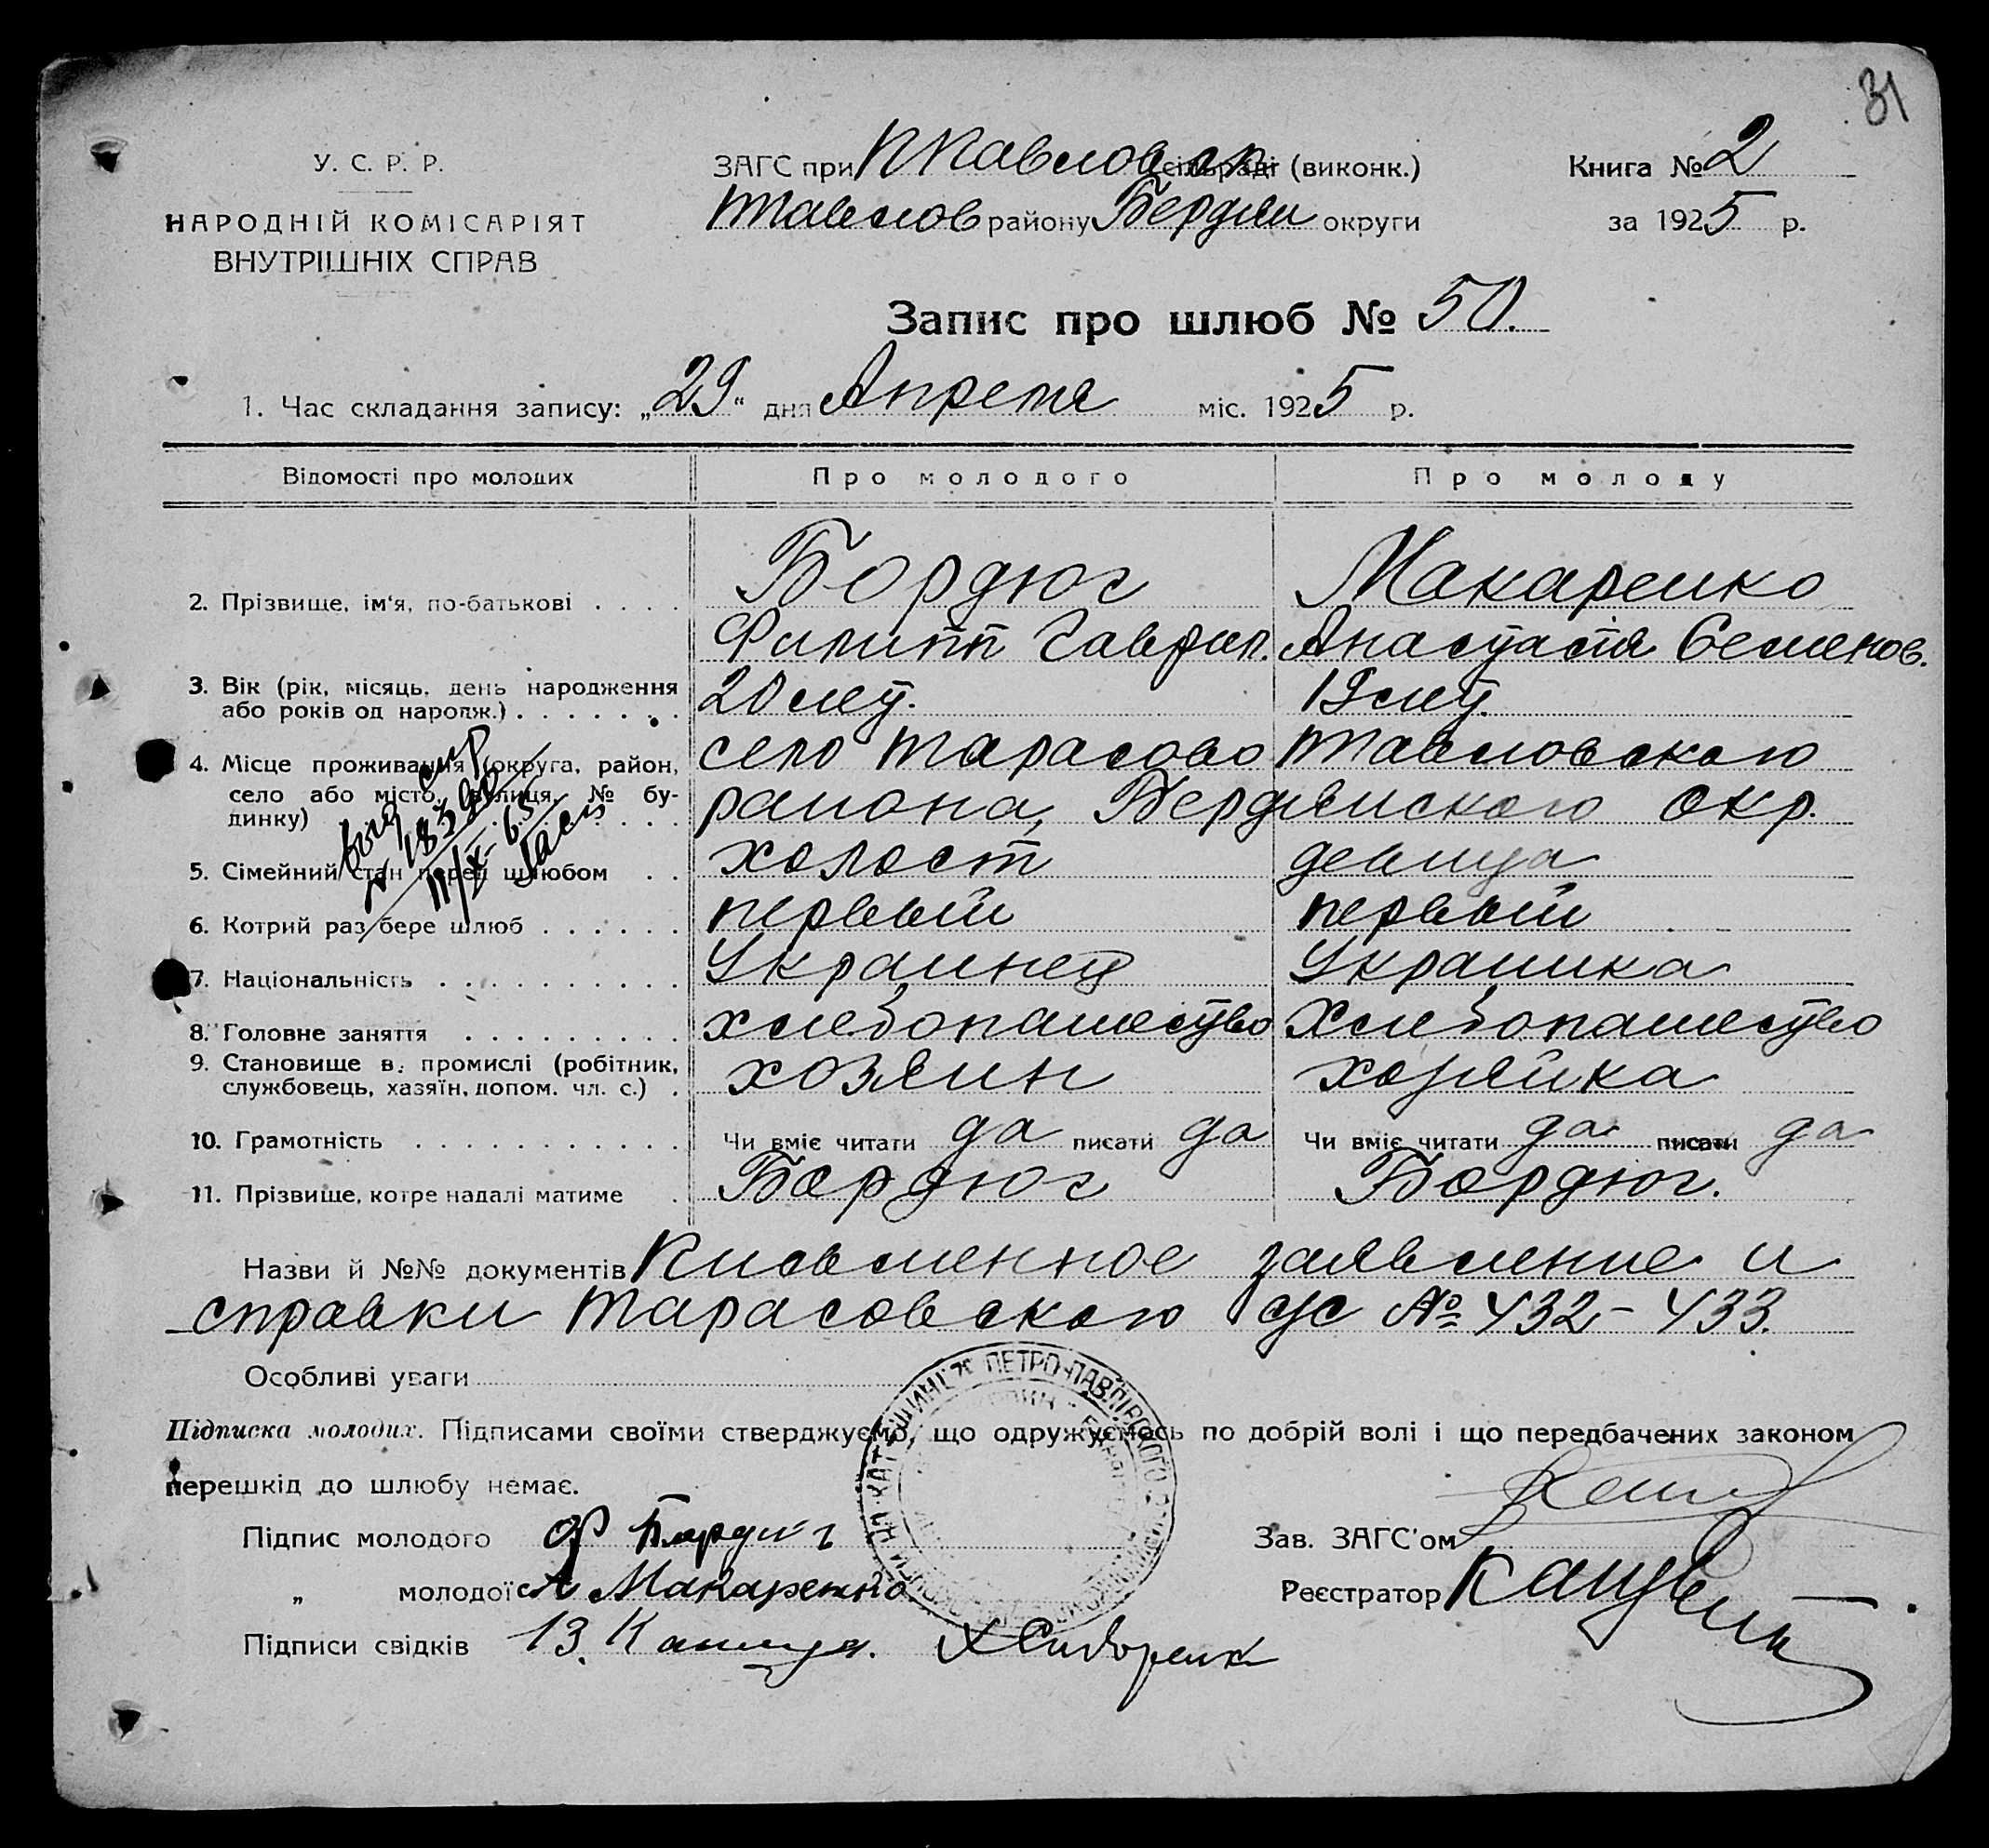 31
У. С. Р. Р.
НАРОДНІЙ КОМІСАРІЯТ
ВНУТРІШНІХ СПРАВ
ЗАГС при ППавловск сільраді (виконк.)
Павлов району Бердян округи
Книга № 2
за 1925 р.
Запис про шлюб № 50.
1. Час складання запису: „29" дня Апреля міс. 1925 р.
Відомості про молодих Про молодого Про молоду
2. Прізвище, ім'я, по-батькові . . . . Бордюг Макаренко
Филипп Гаврил. Анастасия Семенов.
3. Вік (рік, місяць, день народження або років од народж.) . . . . . . . 20 лет. 19 лет.
4. Місце проживання (округа, район, село або місто, вулиця, № будинку) село Тарасово Павловского
района, Бердянского окр.
5. Сімейний стан перед шлюбом . . холост девица
6. Котрий раз бере шлюб . . . . . . первый первый
7. Національність . . . . . . . . . . . Украинец Украинка
8. Головне заняття . . . . . . . . . хлебопашество хлебопашество
9. Становище в промислі (робітник, службовець, хазяїн, допом. чл. с.) . хозяин хозяйка
10. Грамотність . . . . . . . . . . . Чи вміє читати да писати да Чи вміє читати да писати да
11. Прізвище, котре надалі матиме . Бордюг Бордюг.
18390
11/X-65
Назви й №№ документів Письменное заявление и
справки Тарасовского с/с № 432-433.
Особливі уваги
Підписка молодих. Підписами своїми стверджуємо, що одружуємось по добрій волі і що передбачених законом
перешкід до шлюбу немає.
ПЕТРО-ПАВЛІВСЬКОГО
Підпис молодого Ф Бордюг
Зав. ЗАГС'ом
„ молодої А Макаренко
Реєстратор
Підписи свідків Х Сидоренк